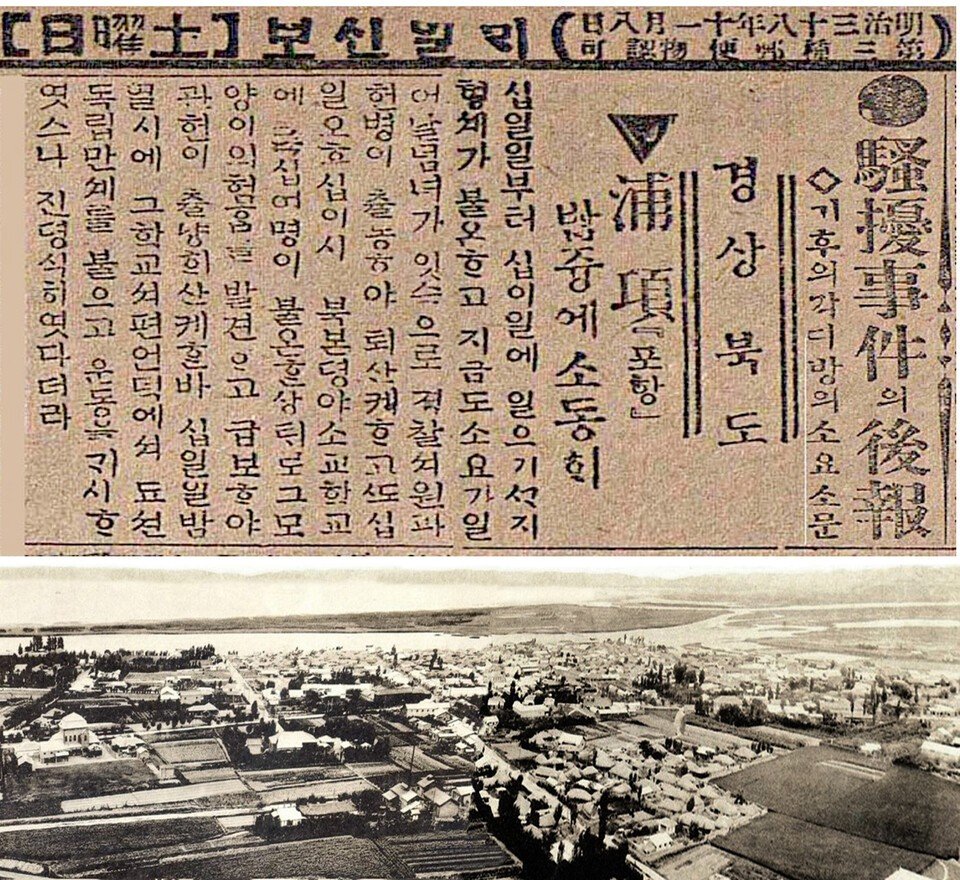 (明治三十八年十一月八日
第三種郵便物認可)
ᄆᆡ일신보
【土曜日】
●騷擾事件의後報
◇기후의각디방의소요소문
경상북도
▼浦項『포항』
밤즁에소동ᄒᆡ
십일일부터 십이일에 일으기ᄭᆞ지
형셰가 불오ᄒᆞ고 지금도소요가일
어날념녀가 잇슴으로 경찰셔원과
헌병이 츌동ᄒᆞ야 퇴산케ᄒᆞ고
일오후십이시 북본뎡야소교학교
에 륙십여명이 불온ᄒᆞᆫ상ᄐᆡ로그모
발견ᄒᆞ고 급보ᄒᆞ야
관헌이 츌쟝ᄒᆡ산케ᄒᆞᆫ바 십일일밤
열시에 그학교셔편언덕에셔
독립만세를 불으고 운동을 ᄀᆡ시ᄒᆞ
엿스나 진뎡식히엿다더라